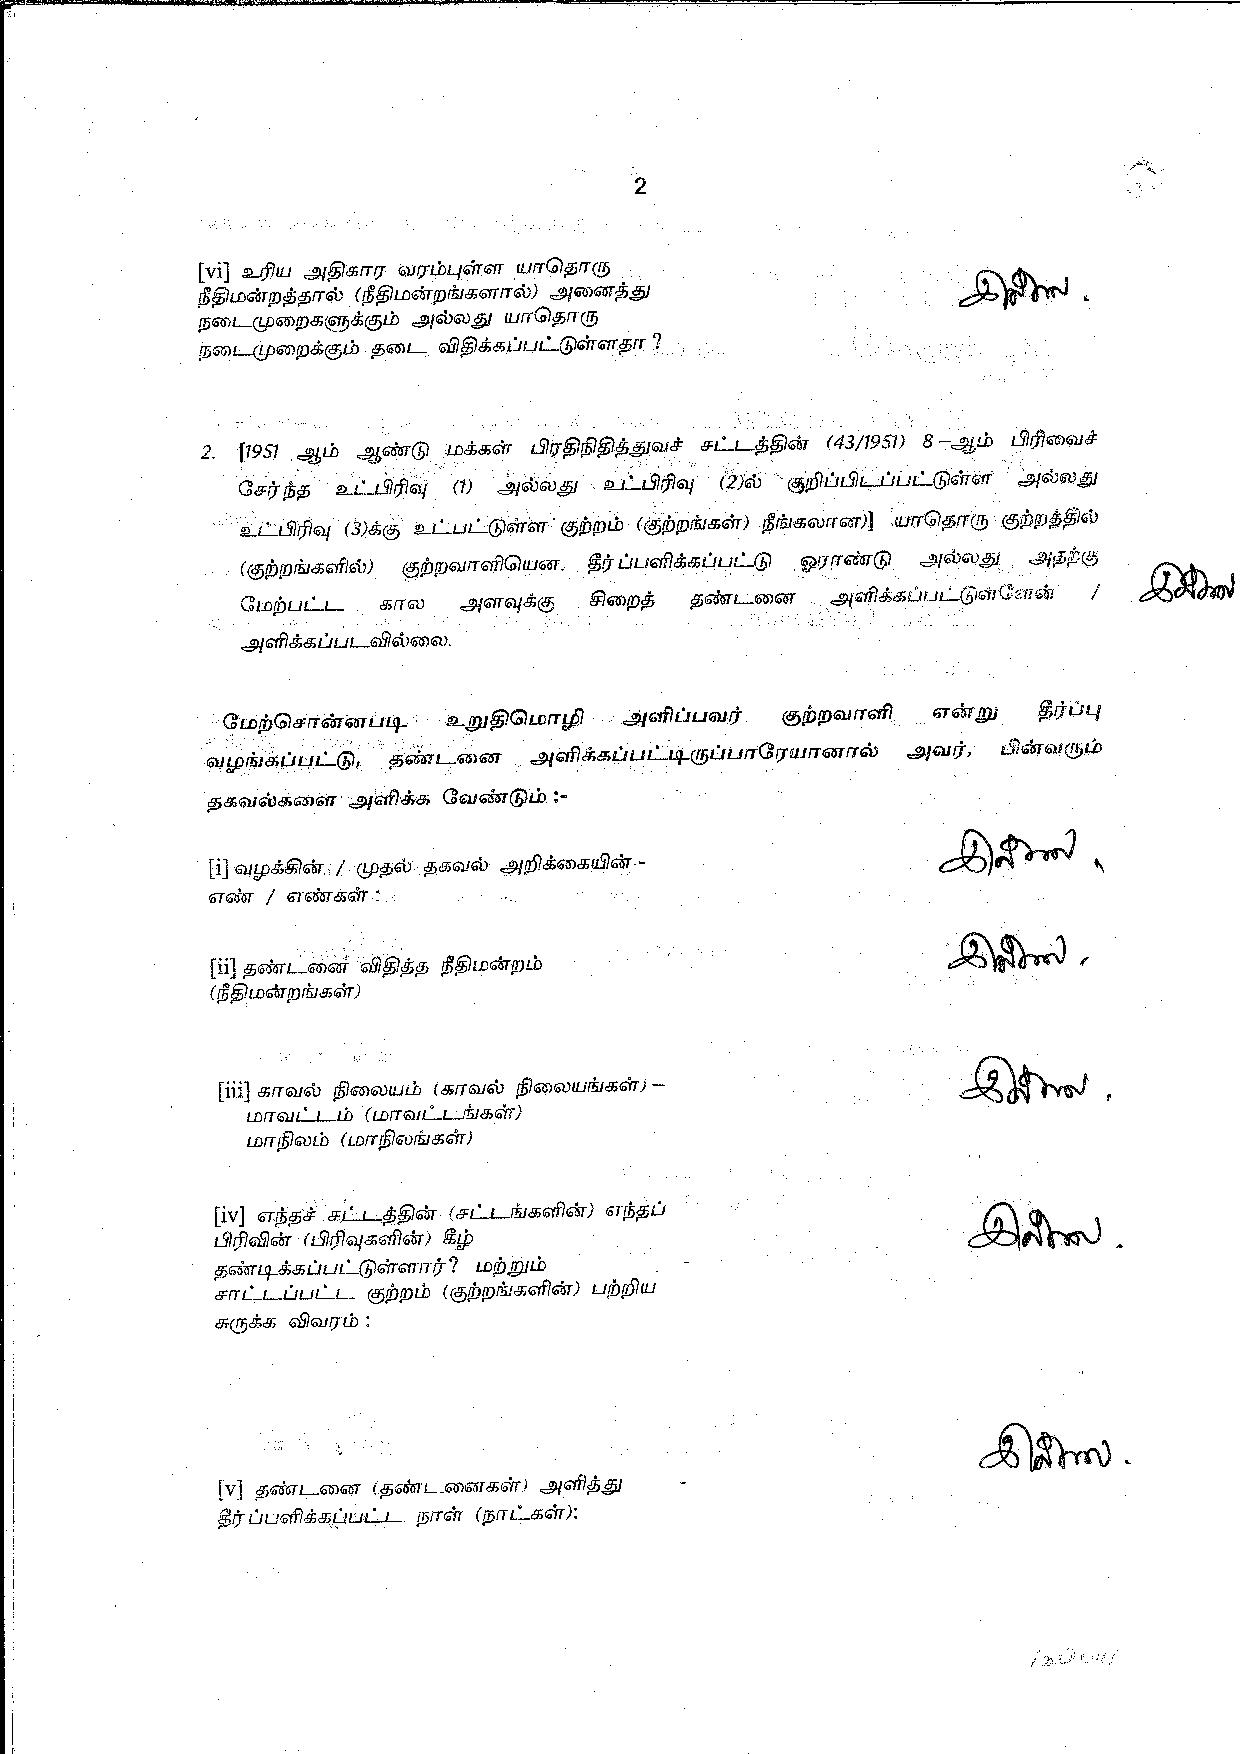 2
[vi] உரிய அதிகார வரம்புள்ள யாதொரு
நீதிமன்றத்தால் (நீதிமன்றங்களால்) அனைத்து
இல்லை.
நடைமுறைகளுக்கும் அல்லது யாதொரு
நடைமுறைக்கும் தடை விதிக்கப்பட்டுள்ளதா ?
2. [1951 ஆம் ஆண்டு மக்கள் பிரதிநிதித்துவச் சட்டத்தின் (43/1951) 8 –ஆம் பிரிவைச்
சேர்ந்த உட்பிரிவு (1) அல்லது உட்பிரிவு (2)ல் குறிப்பிடப்பட்டுள்ள அல்லது
உட்பிரிவு (3)க்கு உட்பட்டுள்ள குற்றம் (குற்றங்கள்) நீங்கலான)] யாதொரு குற்றத்தில்
(குற்றங்களில்) குற்றவாளியென. தீர்ப்பளிக்கப்பட்டு ஓராண்டு அல்லது அதற்கு
மேற்பட்ட கால அளவுக்கு சிறைத் தண்டனை அளிக்கப்பட்டுள்ளேன் / இல்லை
அளிக்கப்படவில்லை.
மேற்சொன்னபடி உறுதிமொழி அளிப்பவர் குற்றவாளி என்று தீர்ப்பு
வழங்கப்பட்டு, தண்டனை அளிக்கப்பட்டிருப்பாரேயானால் அவர், பின்வரும்
தகவல்களை அளிக்க வேண்டும் :-
[i] வழக்கின் / முதல் தகவல் அறிக்கையின் - இல்லை.
எண் / எண்கள் :
[ii] தண்டனை விதித்த நீதிமன்றம் இல்லை.
(நீதிமன்றங்கள்)
[iii] காவல் நிலையம் (காவல் நிலையங்கள்) – இல்லை.
மாவட்டம் (மாவட்டங்கள்)
மாநிலம் (மாநிலங்கள்)
[iv] எந்தச் சட்டத்தின் (சட்டங்களின்) எந்தப்
பிரிவின் (பிரிவுகளின்) கீழ் இல்லை.
தண்டிக்கப்பட்டுள்ளார்? மற்றும் -
சாட்டப்பட்ட குற்றம் (குற்றங்களின்) பற்றிய
சுருக்க விவரம் :
இல்லை.
[v] தண்டனை (தண்டனைகள்) அளித்து -
தீர்ப்பளிக்கப்பட்ட நாள் (நாட்கள்):